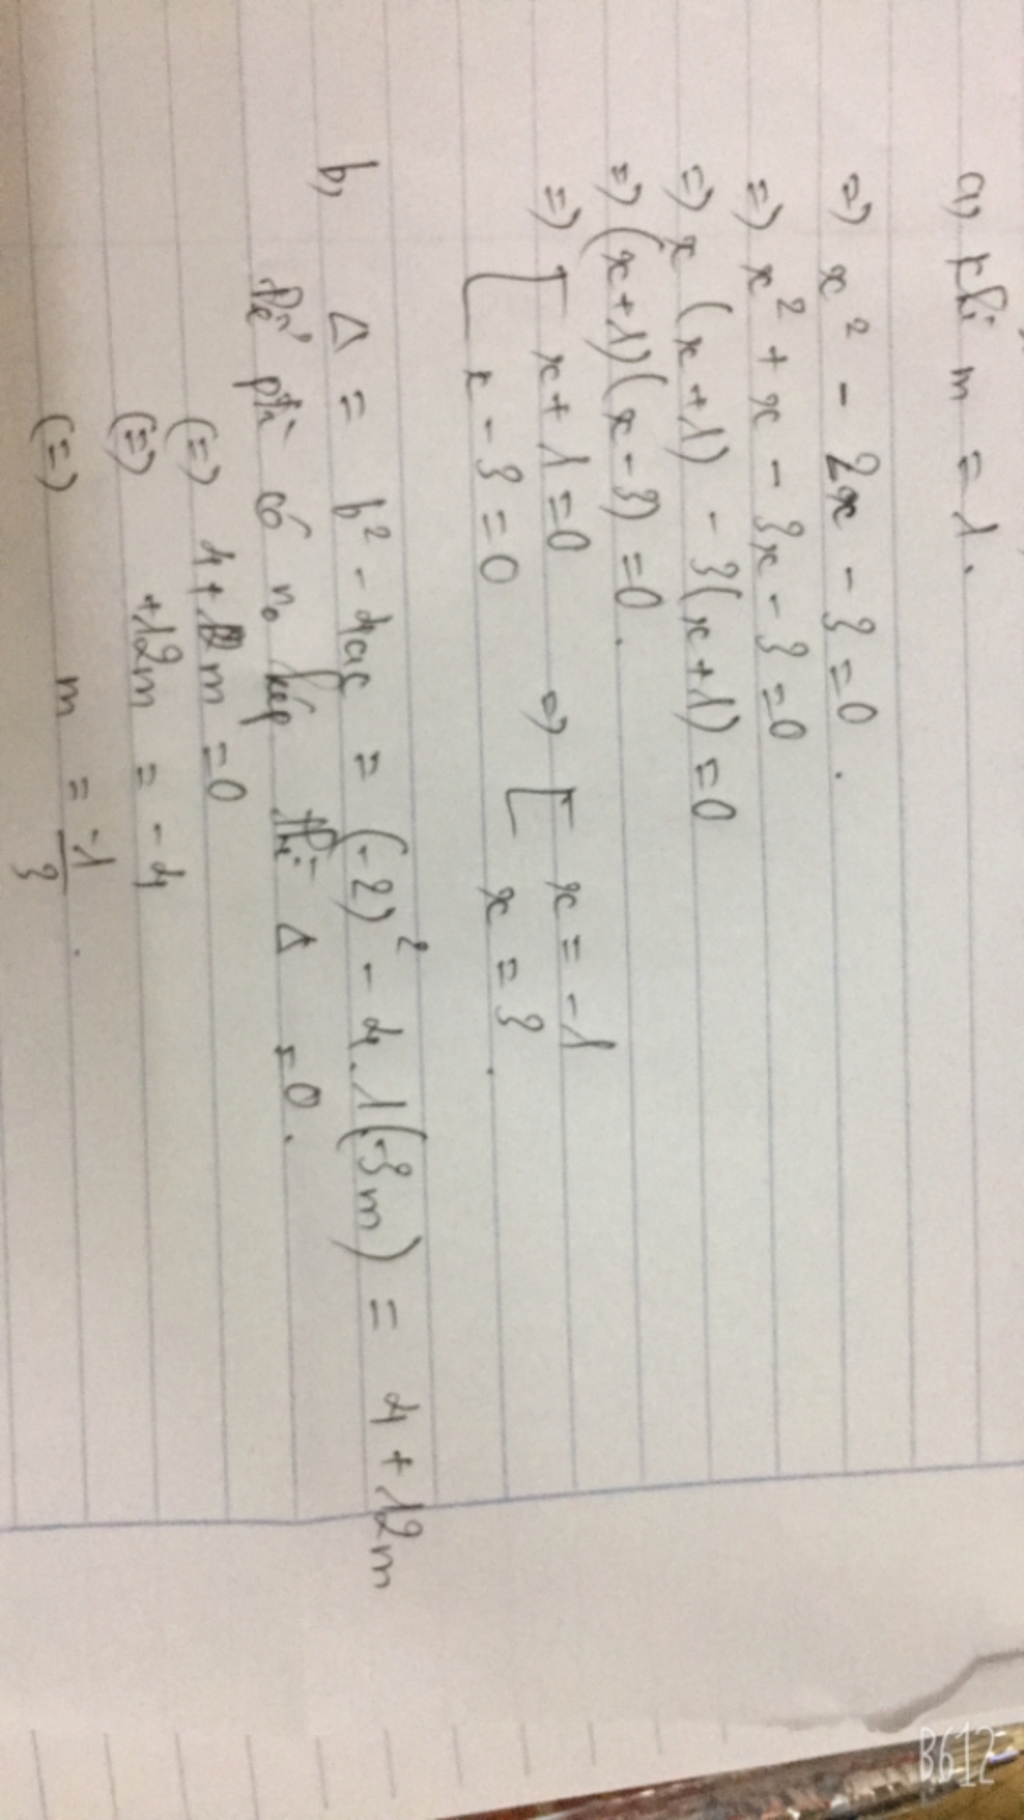 a, khi m = 1.
=> x² - 2x - 3 = 0.
=> x² + x - 3x - 3 = 0
=> x (x + 1) - 3(x + 1) = 0
=> (x + 1)(x - 3) = 0.
=> [ x + 1 = 0 => [ x = -1
x - 3 = 0 x = 3.
b, Δ = b² - 4ac = (-2)² - 4.1(-3m) = 4 + 12m
Để pt có n₀ kép thì Δ = 0.
(=) 4 + 12m = 0
(=) +12m = -4
(=) m = -1/3.
B612